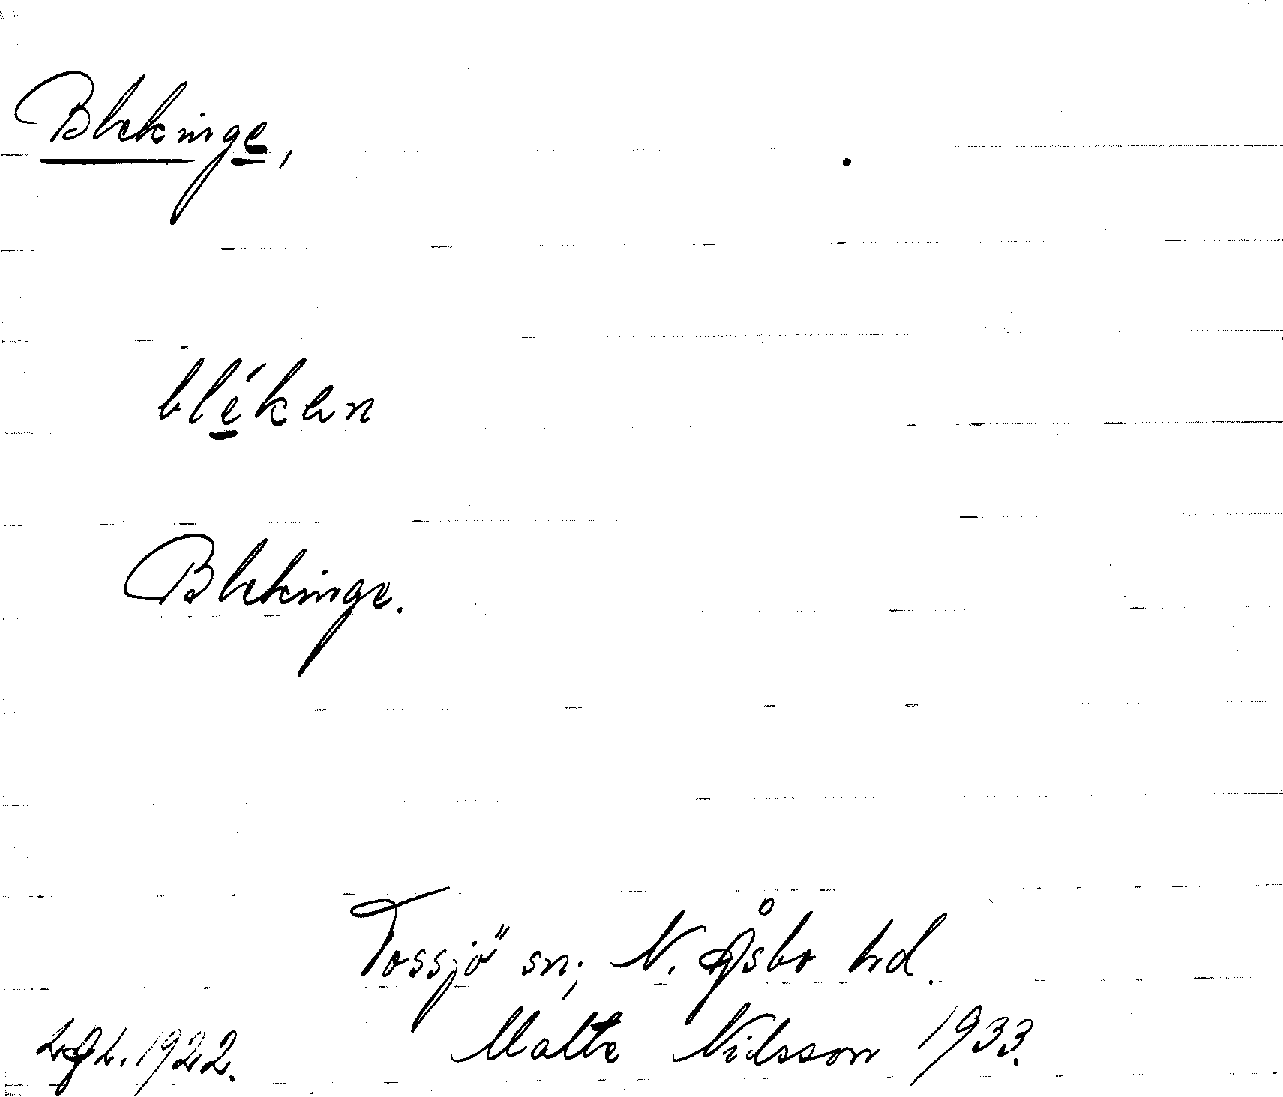 Blekinge,
blékan
Blekinge.
Tossjö sn; N. Åsbo hd.
Malte Nilsson 1933.